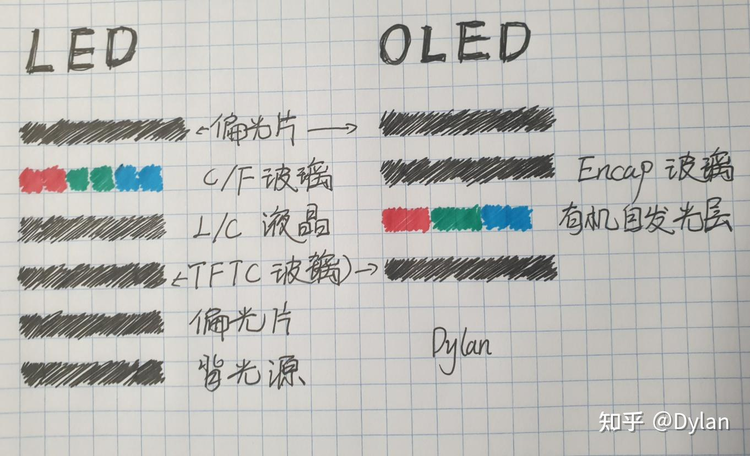 LED
OLED
←偏光片→
C/F 玻璃
Encap 玻璃
L/C 液晶
有机自发光层
←TFTC玻璃)→
偏光片
背光源
Dylan
知乎 @Dylan